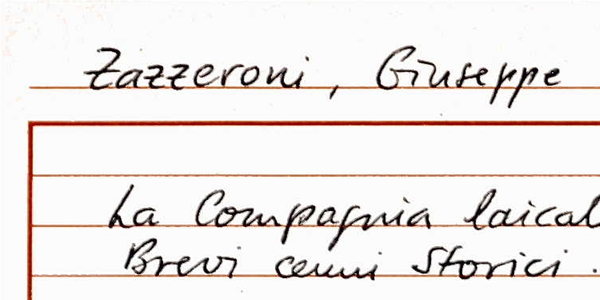 Zazzeroni, Giuseppe
La Compagnia laical
Brevi cenni Storici.